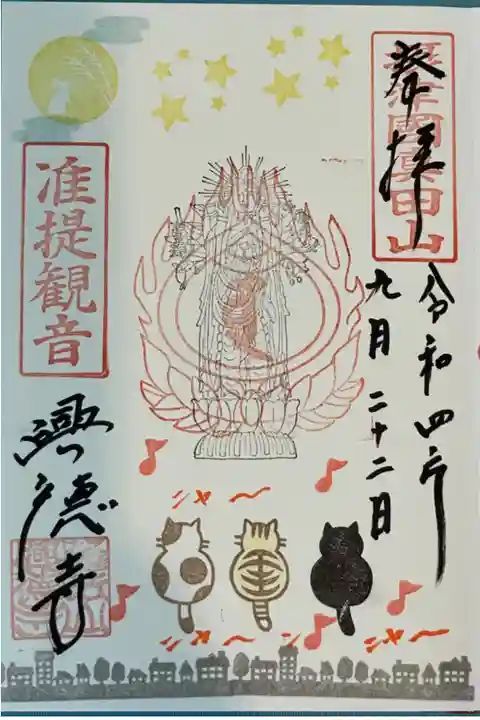 奉拝
津國真田山
令和四年
九月二十二日
准提観音
興徳寺
ニャ〜
ニャ〜
ニャ〜